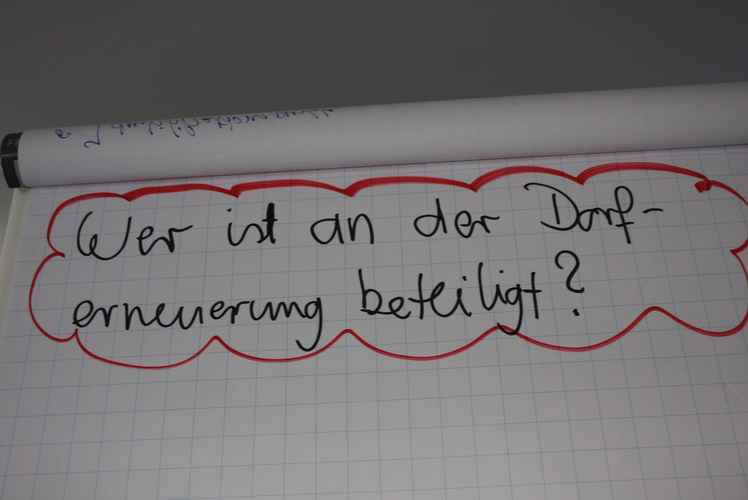 Wer ist an der Dorf-
erneuerung beteiligt?